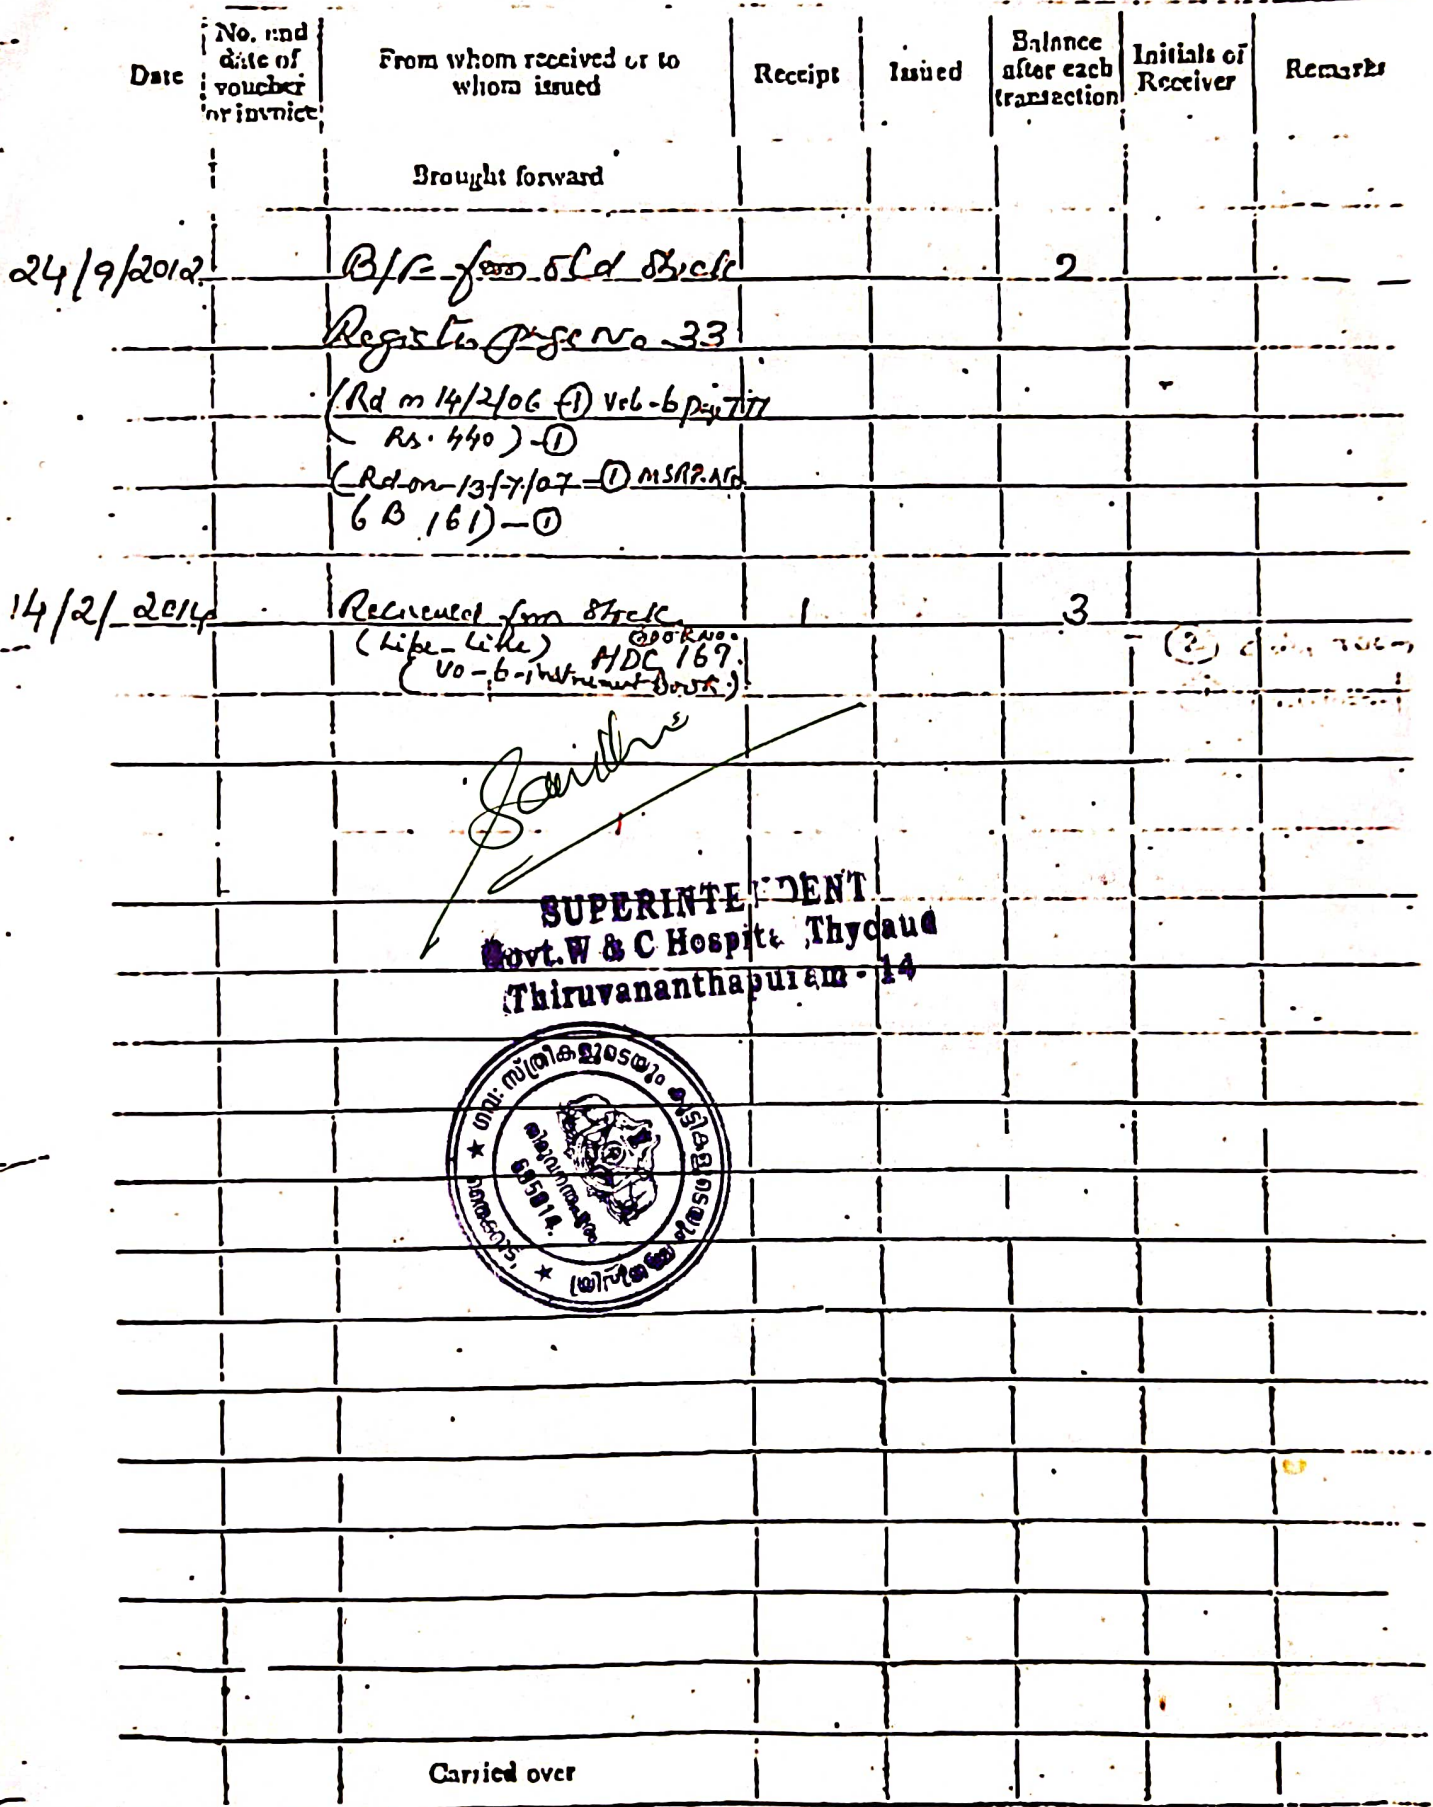 Date
No. and date of voucher or invoice
From whom received or to whom issued
Receipt
Issued
Balance after each transaction
Initials of Receiver
Remarks
Brought forward
24/9/2012 B/F from old Stock 2
Register page No. 33
(Rd on 14/2/06 ① Vol-6 page
Rs. 440) - ①
(Rd on 13/7/07 - ①
6 B 161) - ①
14/2/2014 Received from Stock 1 3
(Life-Line) BOOK NO.
HDC 167.
(Vo-6-instrument Book)
SUPERINTENDENT
Govt. W & C Hospital Thycaud
Thiruvananthapuram - 14
★ ഗവ: സ്ത്രീകളുടെയും കുട്ടികളുടെയും ആശുപത്രി ★ തൈക്കാട്,
തിരുവനന്തപുരം
695014.
Carried over